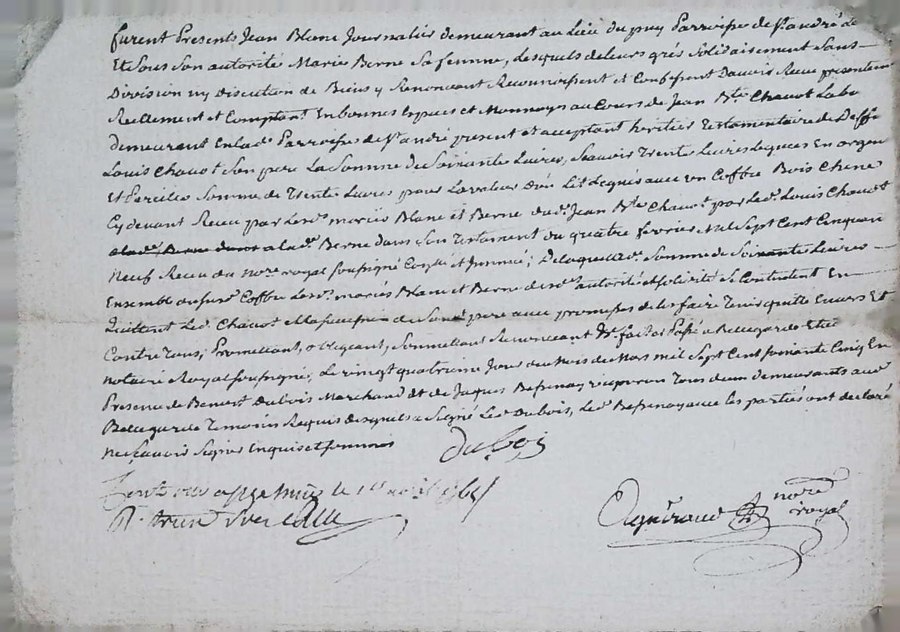 furent Presents Jean Blanc Journalier demeurant au Lieu du puy Parroisse de St andré Le
Et Sous Son autorité Marie Berne Sa femme, Lesquels de leurs grés Solidairement Sans
Division ny Discution de Biens y Renonceant Reconnoissent et Confessent Davoir Receu presentement
Reellement et Comptant En bonnes Espèces et Monnoyes au Cours de Jean Bte Chavot Labo
demeurant En lad. Parroisse de St andré present et acceptant heritier Testamentaire de Deffe
Louis Chavot Son pere La Somme de Soixante Livres, Scavoir Trente Livres Leguées En argent
Et Pareille Somme de Trente Livres pour La valeur D'un Lit Legué avec un Coffre Bois Chene
Cy devant Receu par Lesd. mariés Blanc et Berne dud. Jean Bte Chavot par Led. Louis Chavot
a lad. Berne dans Son Testament du quatre fevrier Mil Sept Cent Cinquan
Neuf Receu du Nore royal soussigné ; De laquelle d. Somme de Soixante Livres
Ensemble du Coffre Lesd. mariés Blanc et Berne de autorité et solidité Se Contentent En
Quittent Led. Chavot de Sond. pere avec promesse de les faire Tenir quitte Envers Et
Contre Tous ; Promettant, obligeant, Soumettant Renonceant &c fait et Passé a Bellegarde Etude
notaire Royal soussigné, Le vingt quatrieme Jour du Mois de Mars mil Sept Cent soixante Cinq En
Presence de Benoist Dubois Marchand et de Jaques Bessenay vigneron Tous deux demeurants aud
Bellegarde Temoins Requis desquels a Signé Led. Dubois, Led. Bessenay avec les parties ont declaré
Ne Scavoir Signer Enquis et sommes
Dubois
le 1er avril
nore
royal